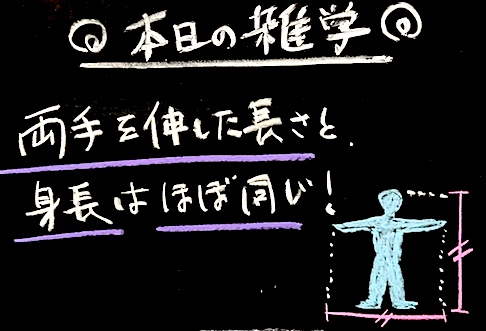 本日の雑学
両手を伸した長さと、
身長はほぼ同じ!